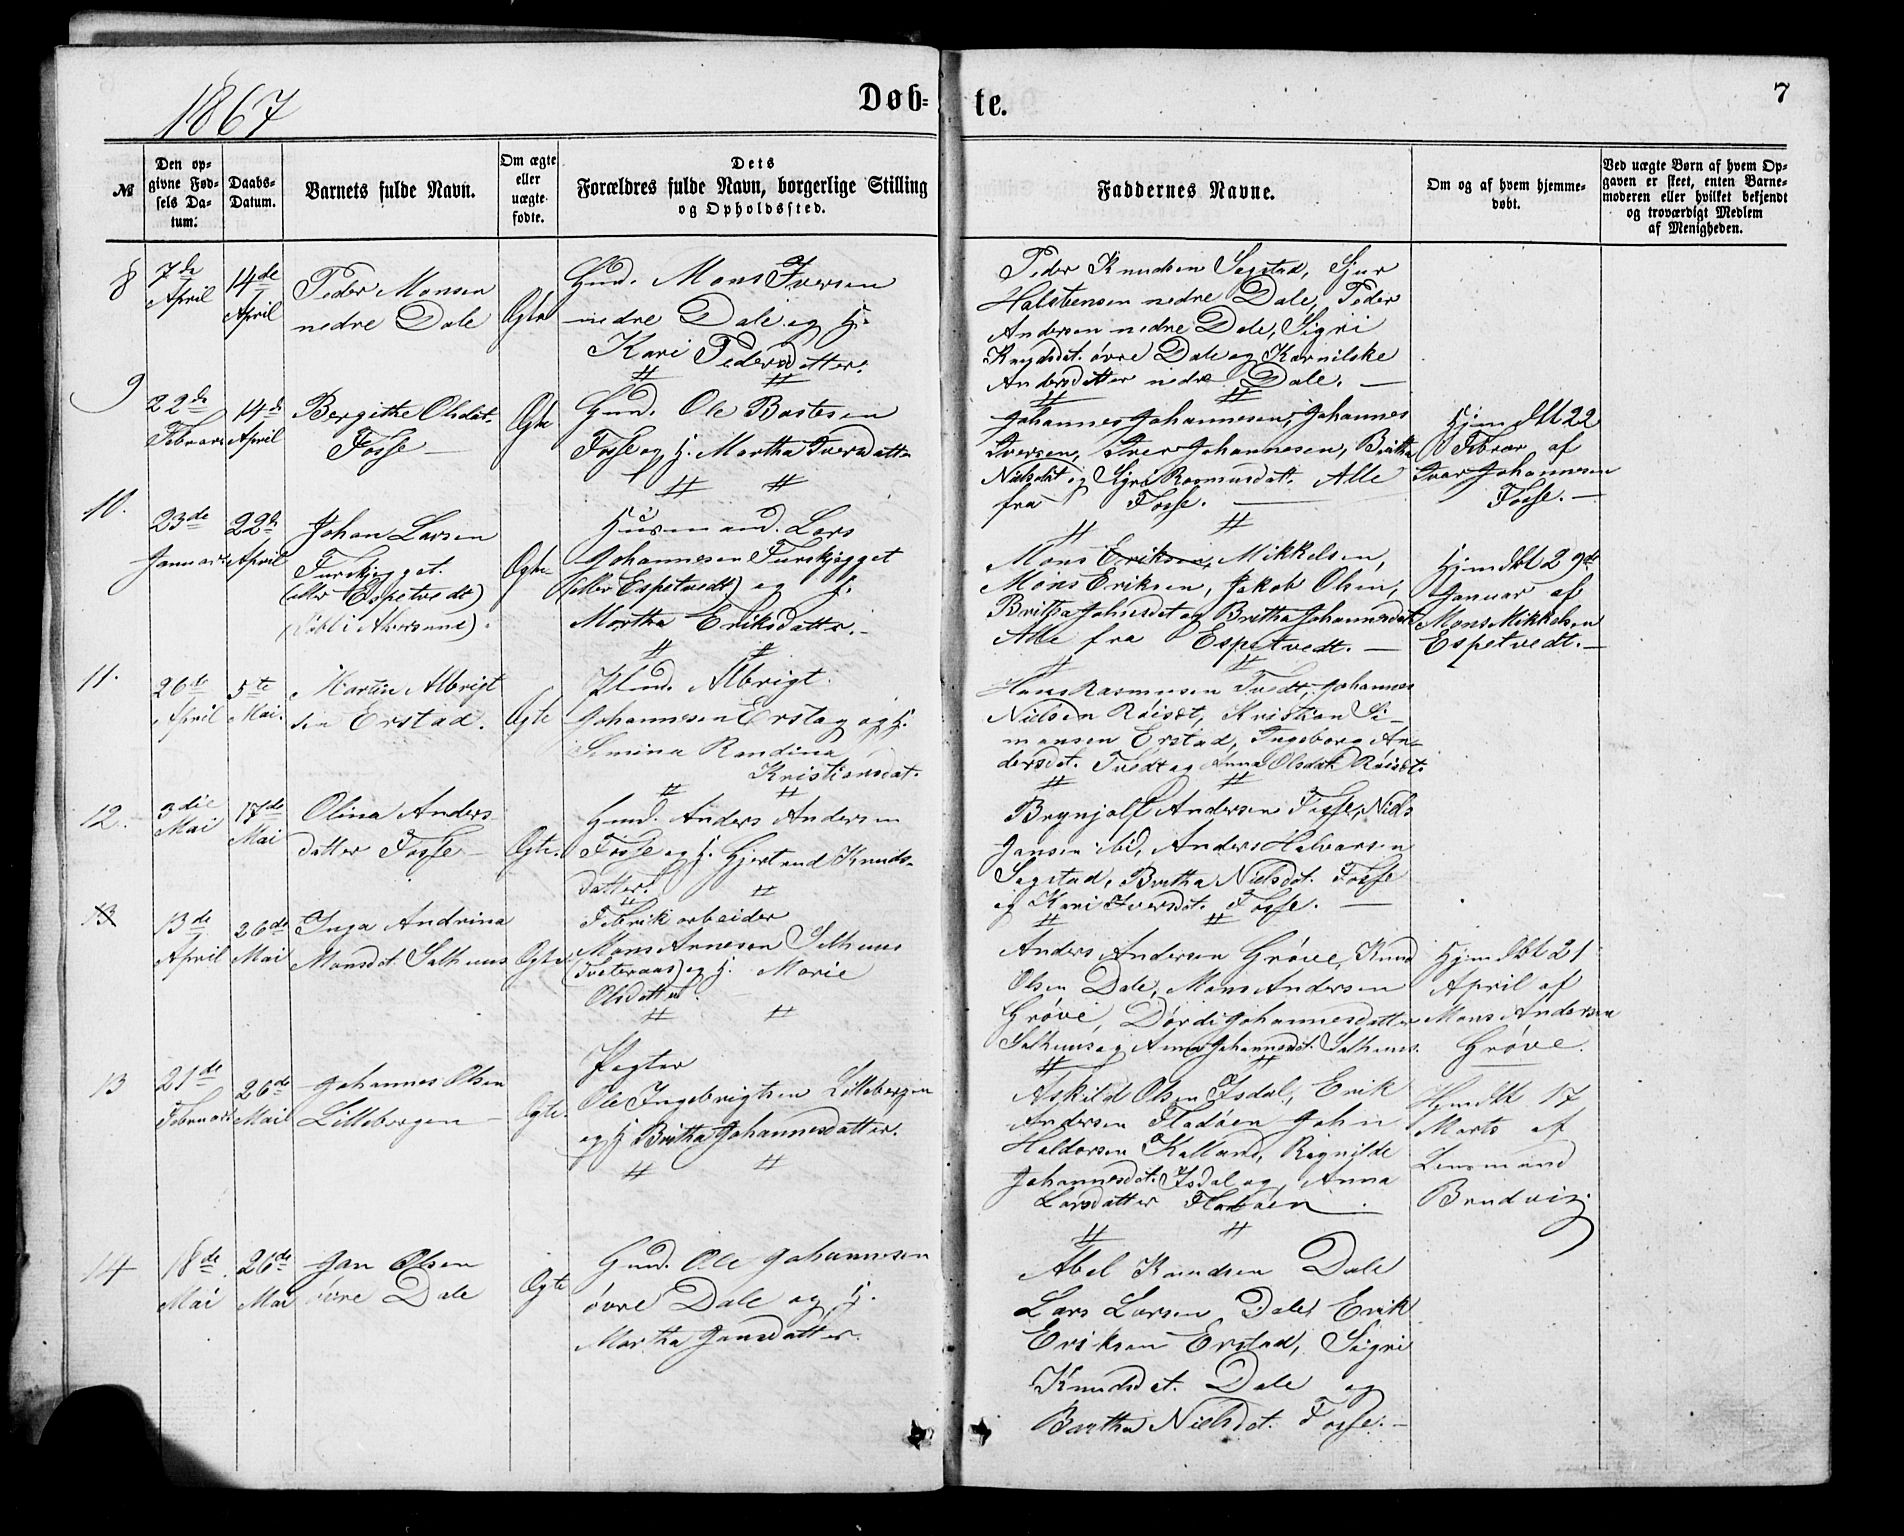 1867
Døb-
te.
7
№
Den op-
givne Fød-
sels Da-
tum.
Daabs-
Datum.
Barnets fulde Navn.
Om ægte
eller
uægte
fødte.
Dets
Forældres fulde Navn, borgerlige Stilling
og Opholdssted.
Faddernes Navne.
Om og af hvem hjemme-
døbt.
Ved uægte Børn af hvem Op-
gaven er skeet, enten Barne-
moderen eller hvilket bekjendt
og troværdigt Medlem
af Menigheden.
8
7de
April
14de
April
Peder Monsen
nedre Dale
Ægte
Gmd. Mons Iversen
nedre Dale og H.
Kari Pedersdatter.
Peder Knudsen Segstad, Sjur
Halstensen nedre Dale, Peder
Andersen nedre Dale, Sigri
Knudsdt. øvre Dale og Karnilske
Andersdatter nedre Dale.
9
22de
Februar
14de
April
Bergithe Olsdat.
Fosse
Ægte
Gmd. Ole Bastesen
Fosse og H. Martha Iversdatter
Johannes Johannesen, Johannes
Iversen, Iver Johannesen, Britha
Nielsdat og Sigri Rasmusdat. Alle
fra Fosse.
Hjemdbt 22
Februar af
Ivar Johannesen
Fosse.
10.
23de
Januar
22de
April
Johan Larsen
Furskjegget
(eller Espetvedt)
(døbt i Alversund).
Ægte
Husmand. Lars
Johannesen Furskjegget
(eller Espetvedt) og H.
Martha Eriksdatter.
Mons Eriksen, Mikkelsen,
Mons Eriksen, Jakob Olsen,
Britha Johnsdat og Britha Johannesdat
Alle fra Espetvedt.
Hjemdbt 29de
Januar af
Mons Mikkelsen
Espetvedt.
11.
26de
April
5te
Mai.
Martin Albrigt
sen Erstad.
Ægte
Plmd. Albrigt
Johannesen Erstag og H.
Semina Randina
Kristiansdat.
Hans Rasmusen Tvedt, Johannes
Nielsen Røisdt, Kristian Si-
mensen Erstad, Ingeborg An-
dersdt. Tvedt og Anna Olsdat. Røisdt.
12.
3die
Mai
17de
Mai
Olina Anders
datter Fosse
Ægte.
Hmd. Anders Andersen
Fosse og H. Gjertrud Knuds-
datter.
Brynjolf Andersen Fosse, Niels
Jansen ibid, Anders Halvorsen
Segstad, Britha Nielsdt. Fosse
og Kari Iversdt. Fosse.
13
13de
April
26de
Mai
Inga Andrina
Monsdt. Salhuus
Ægte
Fabrikarbeider
Mons Arnesen Salhuus
(Tveteraas) og H. Marie
Olsdatter.
Anders Andersen Grøve, Knud
Olsen Dale, Mons Andersen
Grøve, Dordi Johannesdatter
Salhuus og Anna Johannesdt. Salhuus.
Hjemdbt 21
April af
Mons Andersen
Grøve.
13
21de
Februar
26de
Mai
Johannes Olsen
Lillebergen
Ægte.
Pagter
Ole Ingebrigtsen Lillebergen
og H Britha Johannesdatter.
Askild Olsen Isdal, Erik
Andersen Fladøen John
Haldorsen Kalland, Ragnilde
Johannesdt. Isdal og Anna
Larsdatter Fladøen.
Hjemdbt 17
Marts af
Lensmand
Brudvig.
14
18de
Mai
26de
Mai
Jan Olsen
øvre Dale
Ægte
Gmd. Ole Johannesen
øvre Dale og H.
Martha Jansdatter.
Abel Knudsen Dale
Lars Larsen Dale, Erik
Eriksen Erstad, Sigri
Knudsdt. Dale og
Bertha Nielsdt. Fosse.